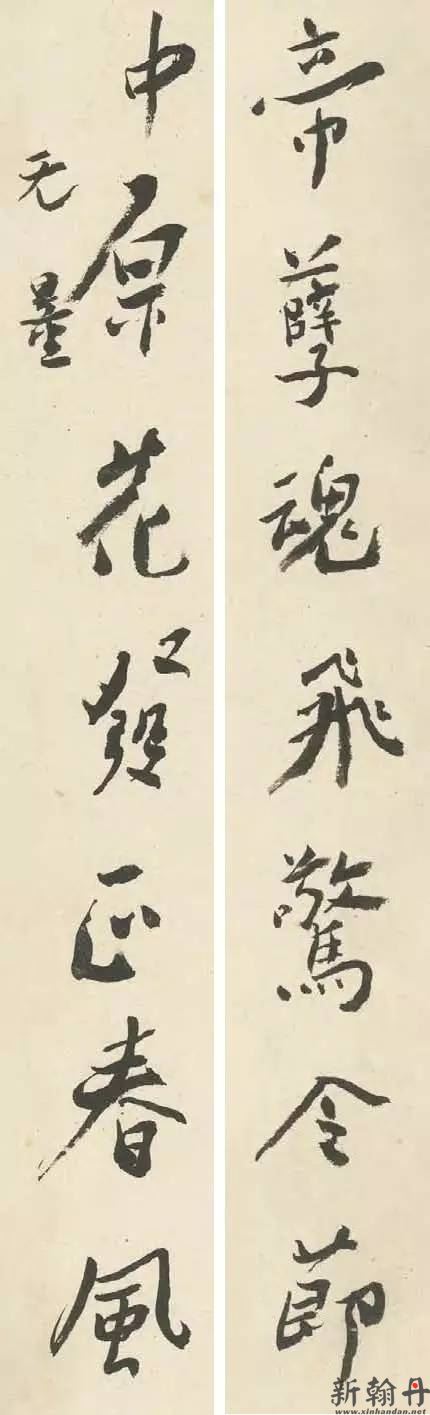 帝孽魂飛驚令莭
中原花發正春風
无量
新翰丹
www.xinhandan.net